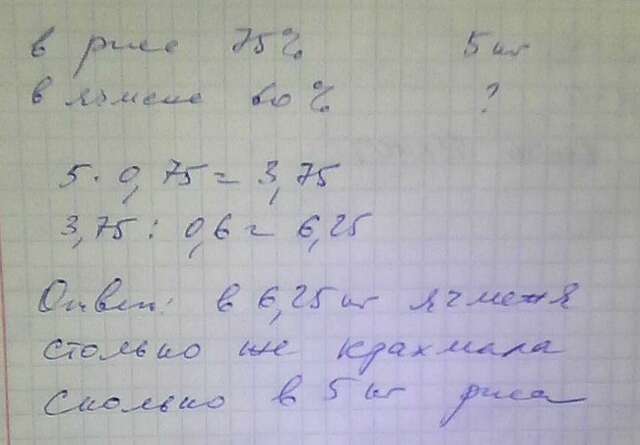 в рисе 75% 5 кг
в ячмене 60% ?
5 · 0,75 = 3,75
3,75 : 0,6 = 6,25
Ответ: в 6,25 кг ячменя
столько же крахмала
сколько в 5 кг риса